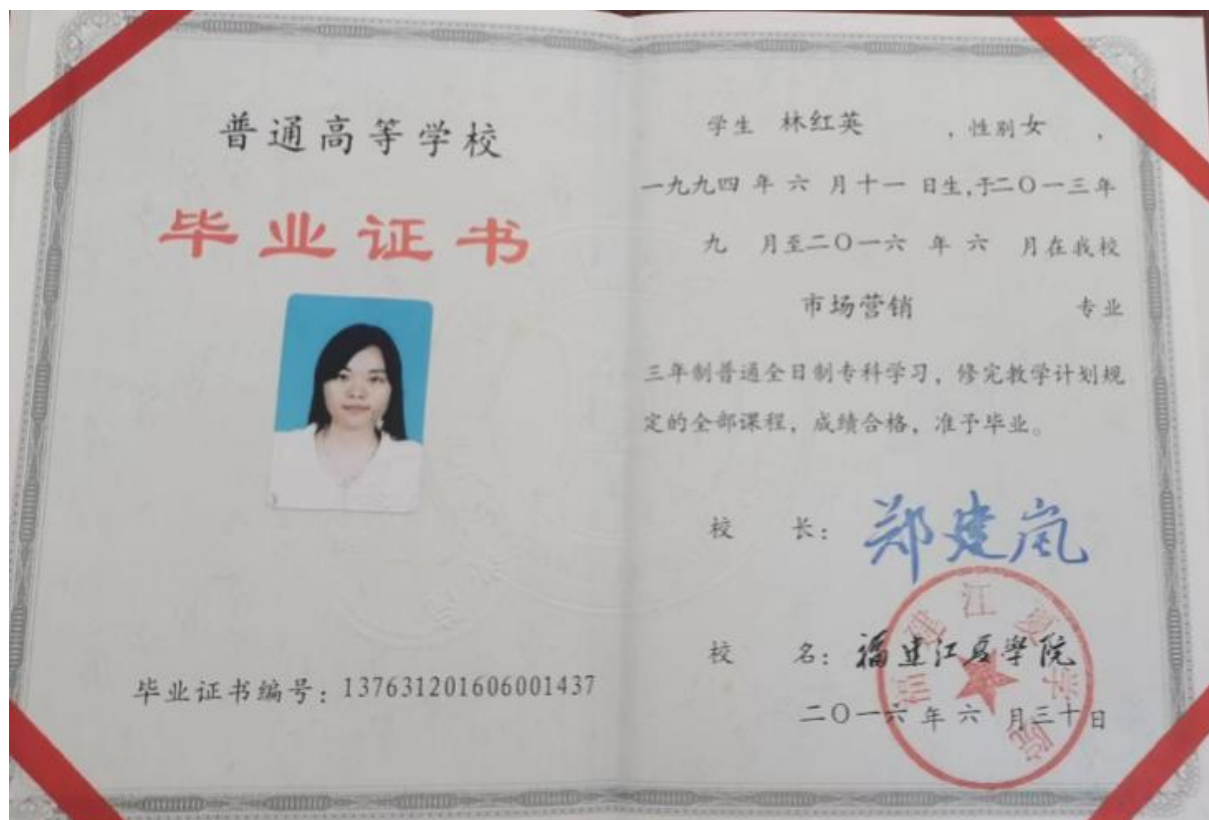 普通高等学校
毕业证书
毕业证书编号：137631201606001437
学生 林红英 ，性别女 ，
一九九四 年 六 月十一 日生，于二〇一三年
九 月至二〇一六 年 六 月在我校
市场营销 专业
三年制普通全日制专科学习，修完教学计划规
定的全部课程，成绩合格，准予毕业。
校 长：郑建岚
校 名：福建江夏学院
二〇一六 年 六 月三十日
福建江夏学院